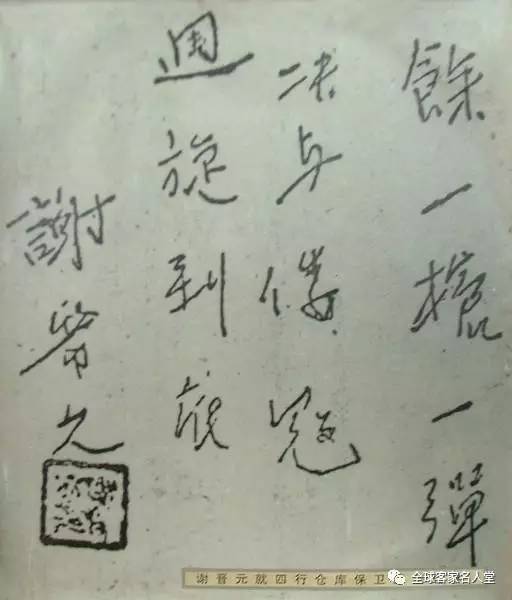 餘一槍一彈
决与倭寇
週旋到底
謝晉元
谢晋元就四行仓库保卫
全球客家名人堂